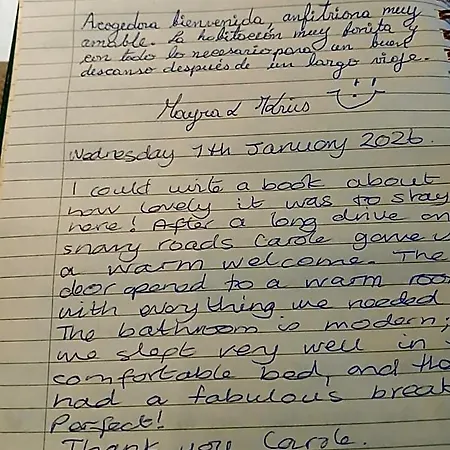 Acogedora bienvenida, anfitriona muy
amable. La habitación muy bonita y
con todo lo necesario para un buen
descanso después de un largo viaje.
Mayra &
Wednesday 7th January 2026.
I could write a book about
how lovely it was to stay
here! After a long drive on
snowy roads Carole gave
a warm welcome. The
door opened to a warm
with everything we needed
The bathroom is modern;
we slept very well in
comfortable bed, and
had a fabulous
Perfect!
Thank you Carole.